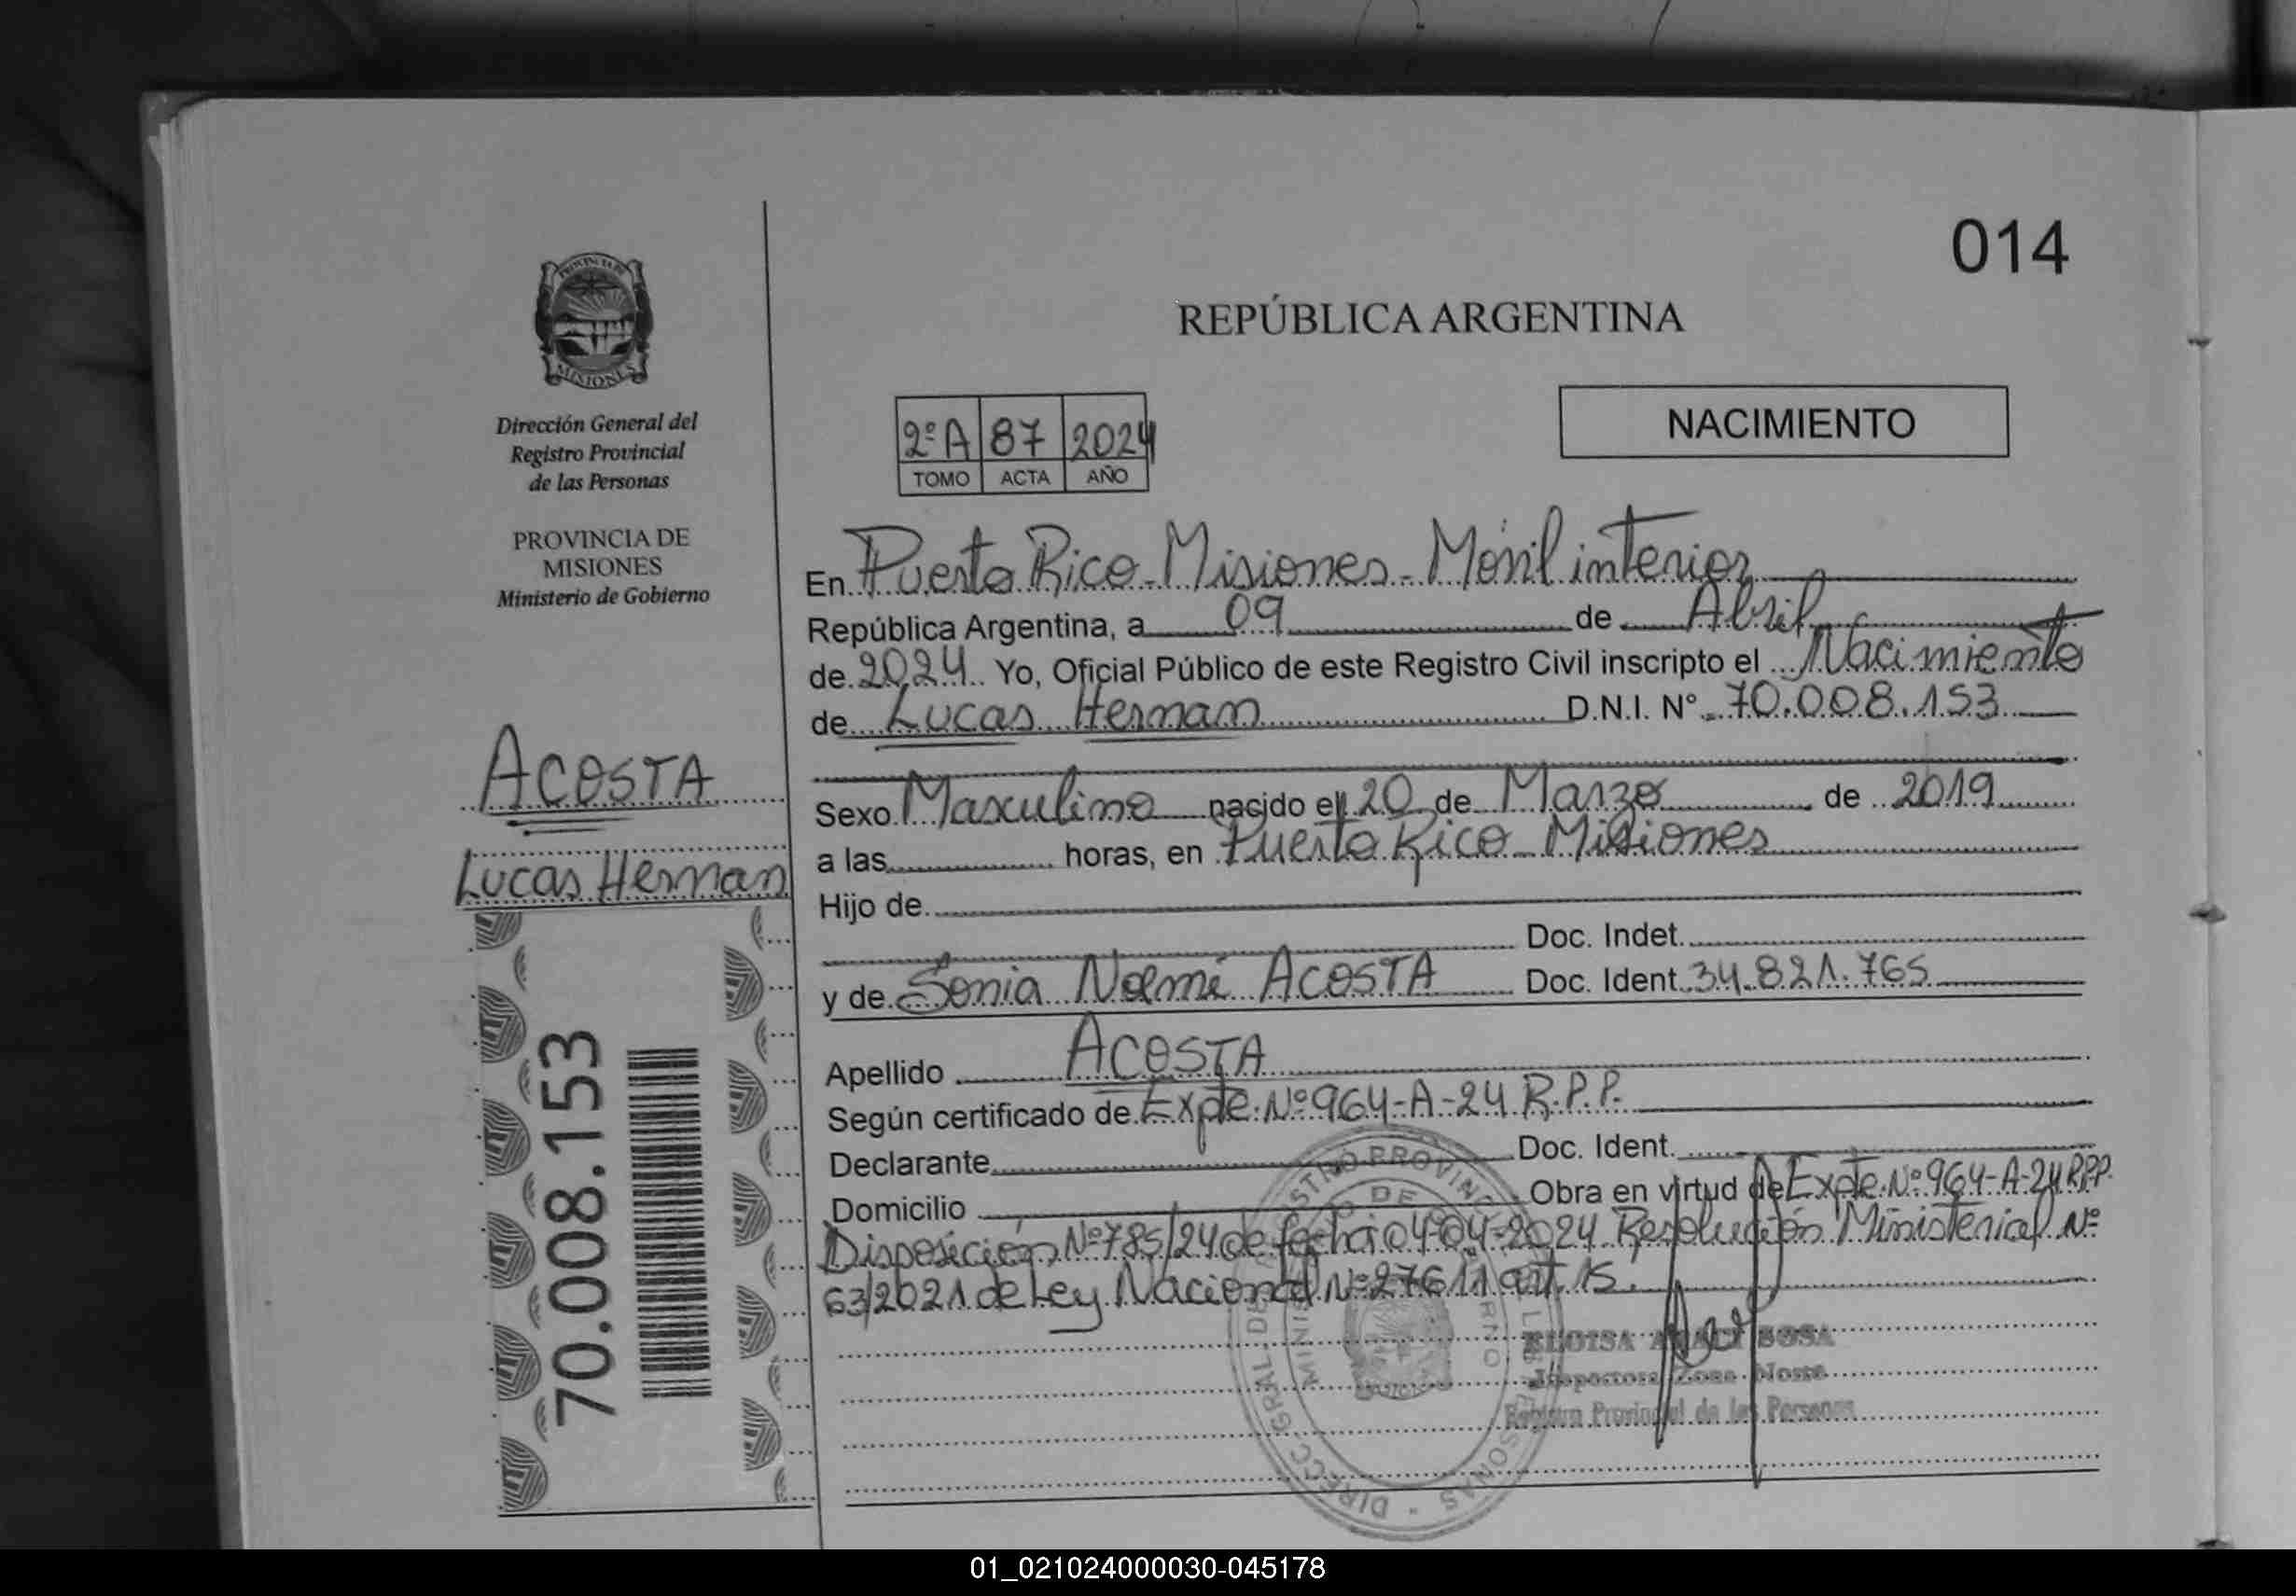 014
REPÚBLICA ARGENTINA
PROVINCIA DE
MISIONES
Dirección General del
Registro Provincial
de las Personas
PROVINCIA DE
MISIONES
Ministerio de Gobierno
ACOSTA
Lucas Hernan
70.008.153
2º A 87 2024
TOMO ACTA AÑO
NACIMIENTO
En Puerto Rico - Misiones - Móvil interior
República Argentina, a 09 de Abril
de 2024 Yo, Oficial Público de este Registro Civil inscripto el Nacimiento
de Lucas Hernan D.N.I. Nº 70.008.153
Sexo Masculino nacido el 20 de Marzo de 2019
a las horas, en Puerto Rico - Misiones
Hijo de
Doc. Indet.
y de Sonia Noemí ACOSTA Doc. Ident. 34.821.765
Apellido ACOSTA
Según certificado de Expte. Nº 964-A-24 R.P.P.
Declarante Doc. Ident.
Domicilio Obra en virtud de Expte. Nº 964-A-24 R.P.P.
Disposición Nº 785/24 de fecha 04-04-2024 Resolución Ministerial Nº
63/2021 de Ley Nacional Nº 27611 art. 15.
ELOISA SOSA
Inspectora Zona Norte
Registro Provincial de las Personas
01_021024000030-045178